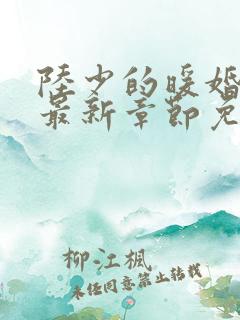 陸少的暖婚
最新章節免
柳江楓
未经同意禁止转载